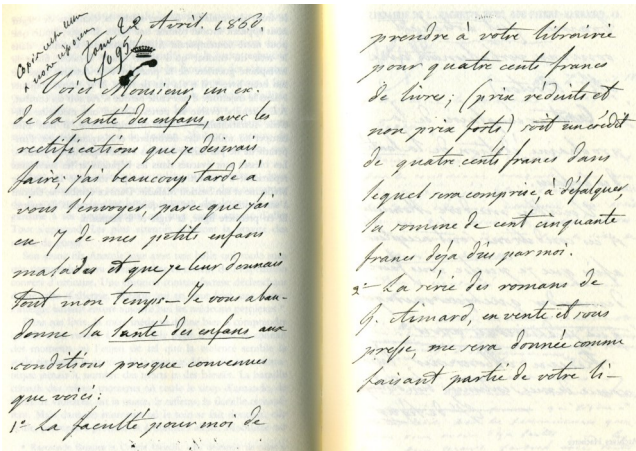 Avril. 1860.
Voici Monsieur, un ex.
de la santé des enfans, avec les
rectifications que je desirais
faire; j'ai beaucoup tardé à
vous l'envoyer, parce que j'ai
eu 7 de mes petits enfans
malades et que je leur donnais
tout mon temps_ Je vous aban-
donne la santé des enfans aux
conditions presque convenues
que voici:
1º La faculté pour moi de
prendre à votre librairie
pour quatre cents francs
de livres; (prix réduits et
non prix forts) soit un crédit
de quatre cents francs dans
lequel sera comprise, à défalquer,
la somme de cent cinquante
francs déja dûs par moi.
2º La série des romans de
G. Aimard, en vente et sous
presse, me sera donnée comme
faisant partie de votre li-